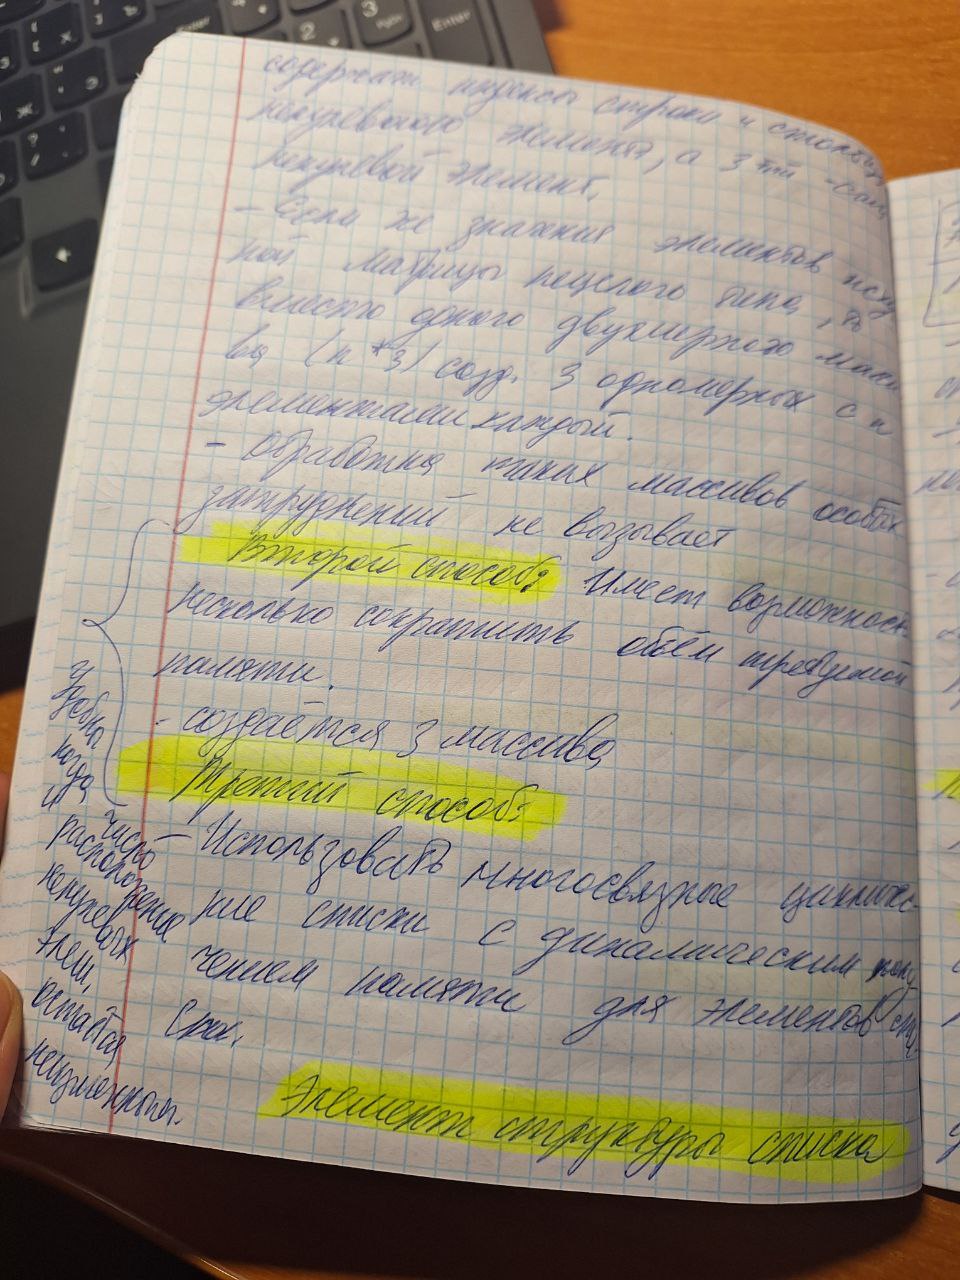 содержат индексы строки и столбца
ненулевого элемента, а 3-тий - сам
ненулевой элемент.
- Если же значения элементов исход
ной матрицы нецелого типа, то
вместо одного двухмерного масси
ва (n*3) созд. 3 одномерных с n
элементами каждый.
- Обработка таких массивов особых
затруднений не вызывает
Второй способ: Имеет возможность
несколько сократить объём требуемой
памяти.
- создаётся 3 массива
Третий способ:
- Использовать многосвязные цикличес-
кие списки с динамическим полу
чением памяти для элементов
Элемент структуры списка
удобно
когда
число
и
расположение
ненулевых
элем.
остаётся
неизменным.